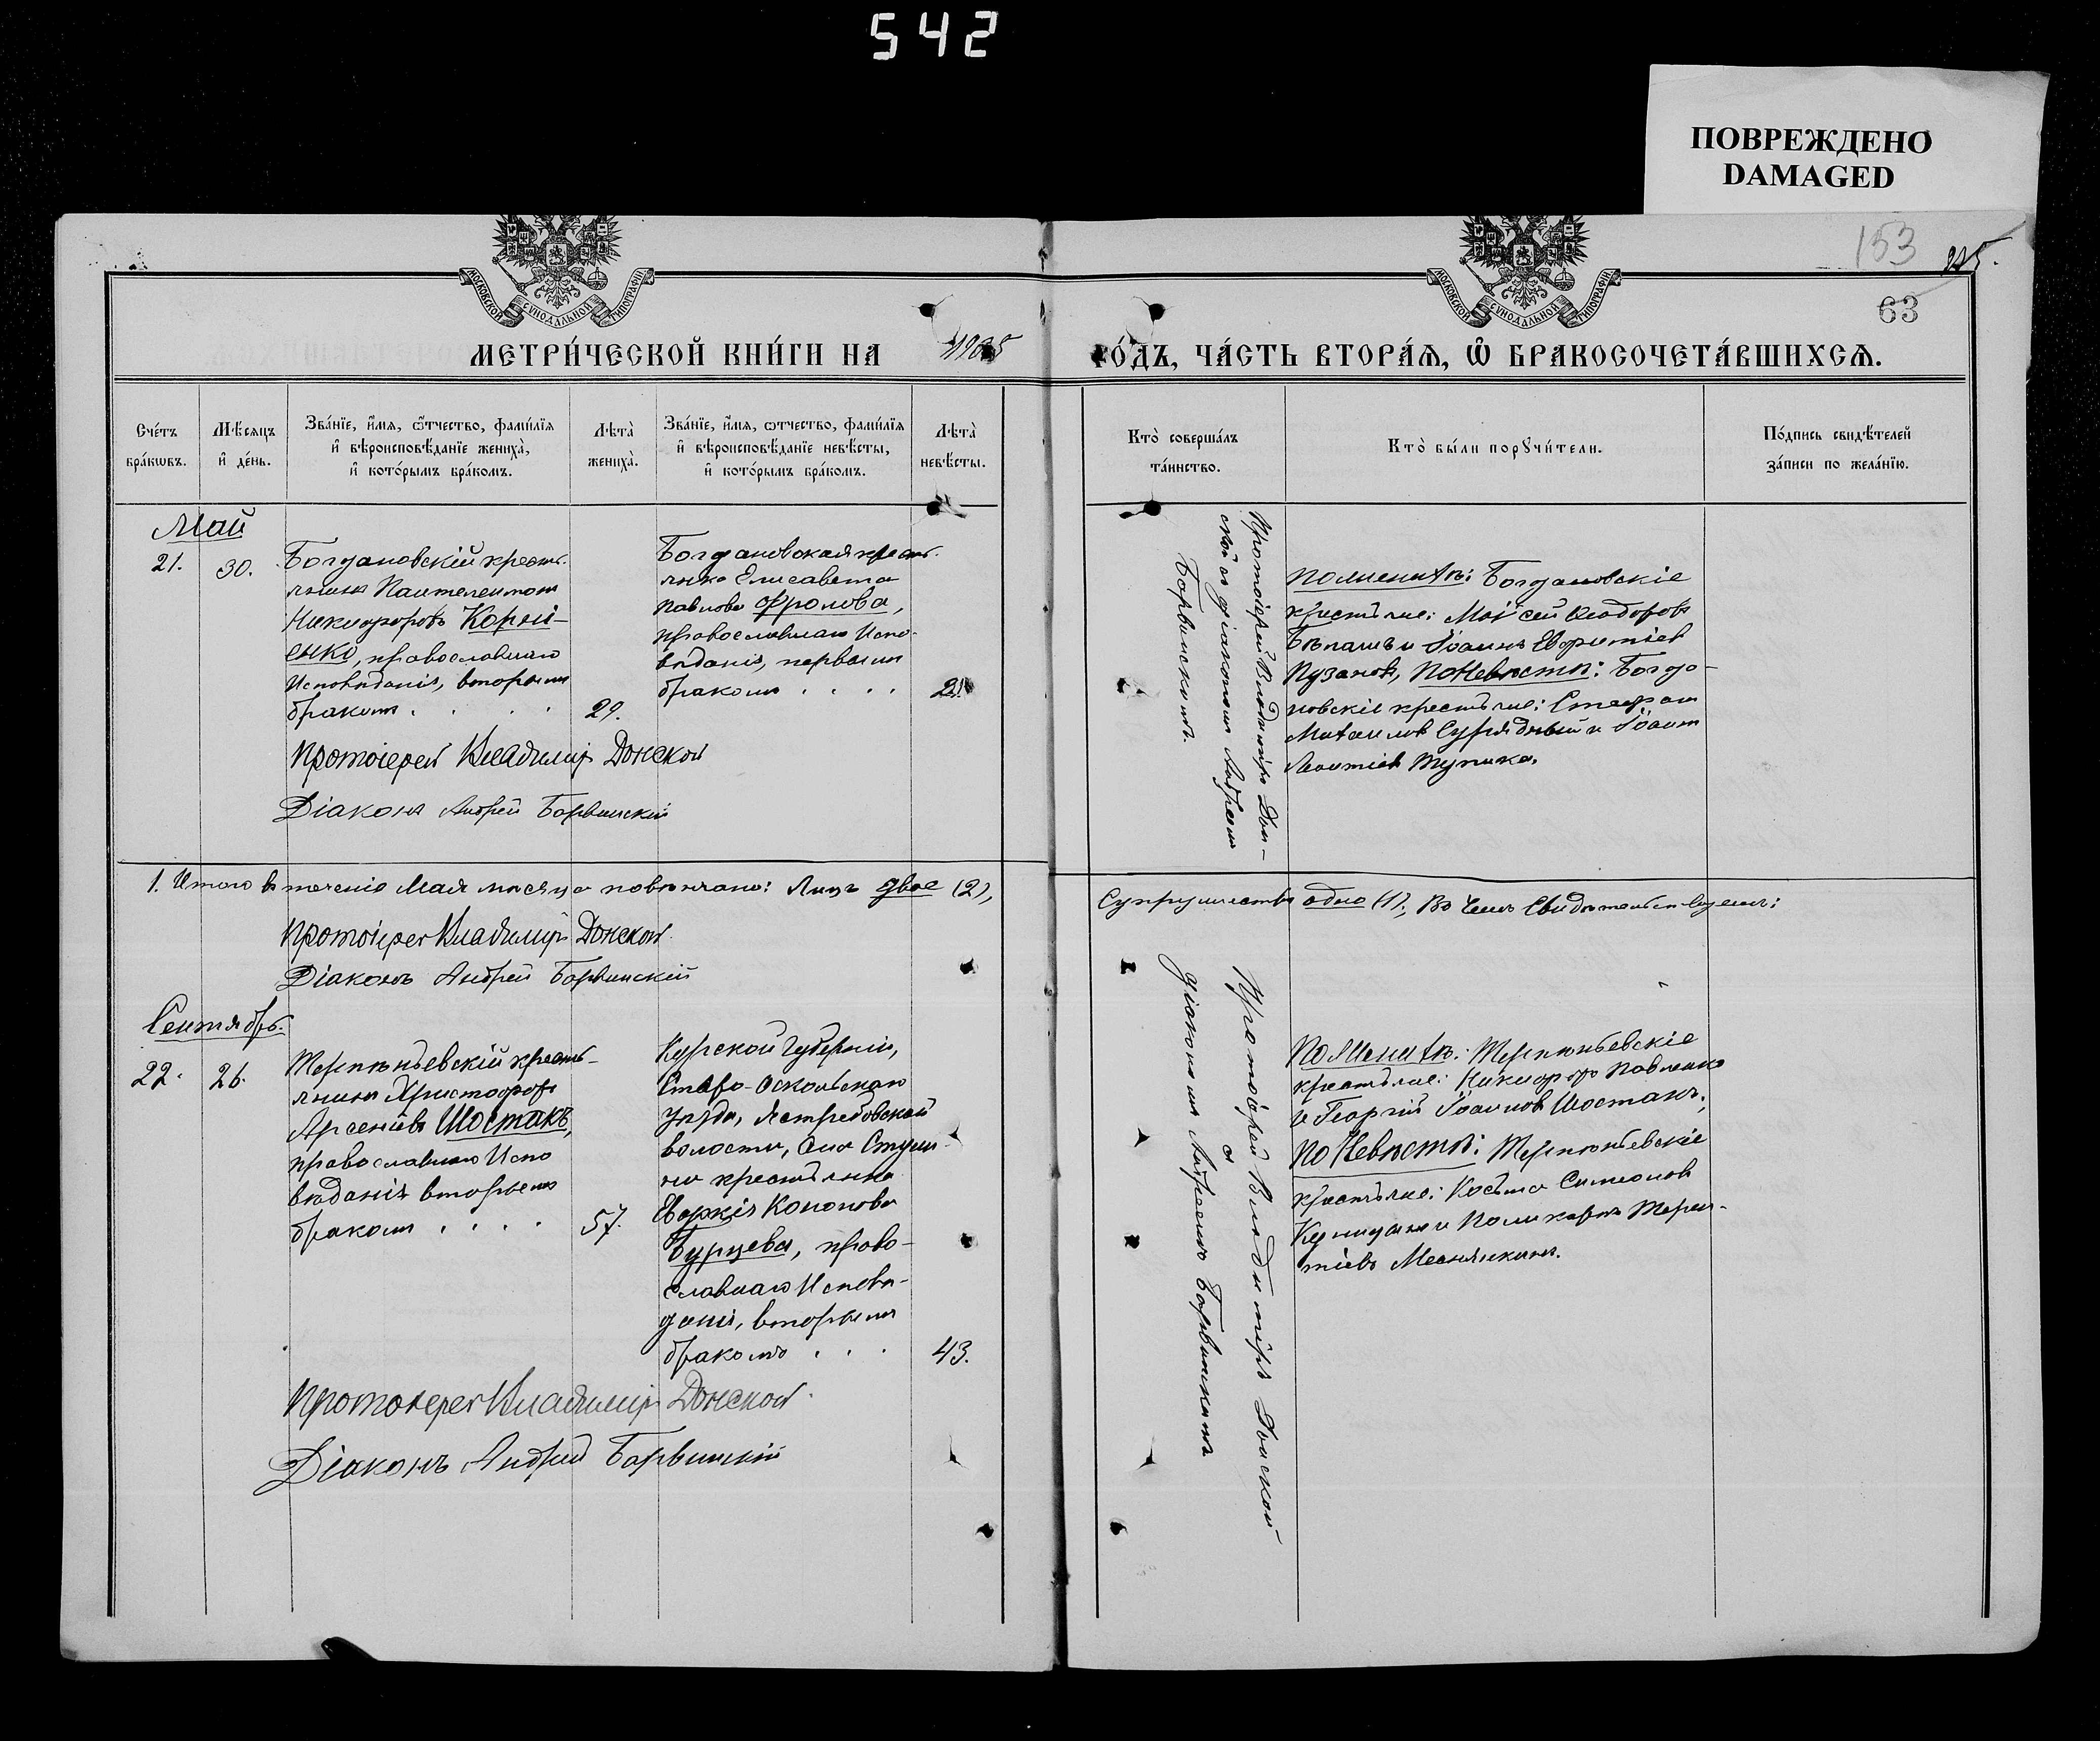 542
ПОВРЕЖДЕНО
DAMAGED
МОСКОВСКОЙ СѴНОДАЛЬНОЙ ТИПОГРАФІИ
МОСКОВСКОЙ СѴНОДАЛЬНОЙ ТИПОГРАФІИ
153
63
МЕТРИ́ЧЕСКОЙ КНИ́ГИ НА 1905
ГО́ДЪ, ЧА́СТЬ ВТОРА́Я, Ѡ҆ БРАКОСОЧЕТА́ВШИХСѦ.
Сче́тъ
бра́кѡвъ.
Мѣ́сяцъ
и҆ де́нь.
Зва́нїе, и҆́мя, ѻ҆́тчество, фами́лїя
и҆ вѣроисповѣ́данїе жениха̀,
и҆ кото́рымъ бра́комъ.
Лѣта̀
жениха̀.
Зва́нїе, и҆́мя, ѻ҆́тчество, фами́лїя
и҆ вѣроисповѣ́данїе невѣ́сты,
и҆ кото́рымъ бра́комъ.
Лѣта̀
невѣ́сты.
Кто̀ соверша́лъ
та́инство.
Кто̀ бы́ли порꙋчи́тели.
По́дпись свидѣ́телей
за́писи по жела́нїю.
Май
21.
30.
Богдановскій кресть-
янинъ Пантелеимонъ
Никифоровъ Корні-
енко, православнаго
Исповѣданія, вторымъ
бракомъ . . . .
29.
Богдановская кресть-
янка Елисавета
Павлова Фролова,
православнаго Испо-
вѣданія, первымъ
бракомъ . . . .
21
Протоіерей Владиміръ Дон-
ской съ діакономъ Андреемъ
Борвинскимъ.
По женихѣ: Богдановскіе
крестьяне: Моисей Ѳеодоровъ
и Іоаннъ
Пузановъ, По невѣстѣ: Богда-
новскіе крестьяне: Стефанъ
Михаиловъ и Іоаннъ
Леонтіевъ Тупика.
Протоіерей Владиміръ Донской
Діаконъ Андрей Борвинскій
1. Итого въ теченіе Мая мѣсяца повѣнчано: Лицъ двое (2),
Супружествъ одно (1); Въ чемъ Свидѣтельствуемъ:
Протоіерей Владиміръ Донской
Діаконъ Андрей Борвинскій
Сентябрь.
22.
26.
Терпѣньевскій кресть-
янинъ Христофоръ
Арсеніевъ Шостакъ,
православнаго Испо
вѣданія вторымъ
бракомъ . . . .
57.
Курской Губерніи,
Старо-Оскольскаго
уѣзда, Ястребовской
волости, села
крестьянка
Евдокія Кононова
Бурцева, право-
славнаго Исповѣ-
данія, вторымъ
бракомъ . . .
43.
Протоіерей Владиміръ Донской
съ
діакономъ Андреемъ Борвинскимъ
По Женихѣ: Терпѣньевскіе
крестьяне: Никифоръ Павленко
и Георгій Іоанновъ Шостакъ;
По Невѣстѣ: Терпѣньевскіе
крестьяне: Косьма Симеоновъ
и Поликарпъ Терен-
тіевъ
Протоіерей Владиміръ Донской
Діаконъ Андрей Борвинскій